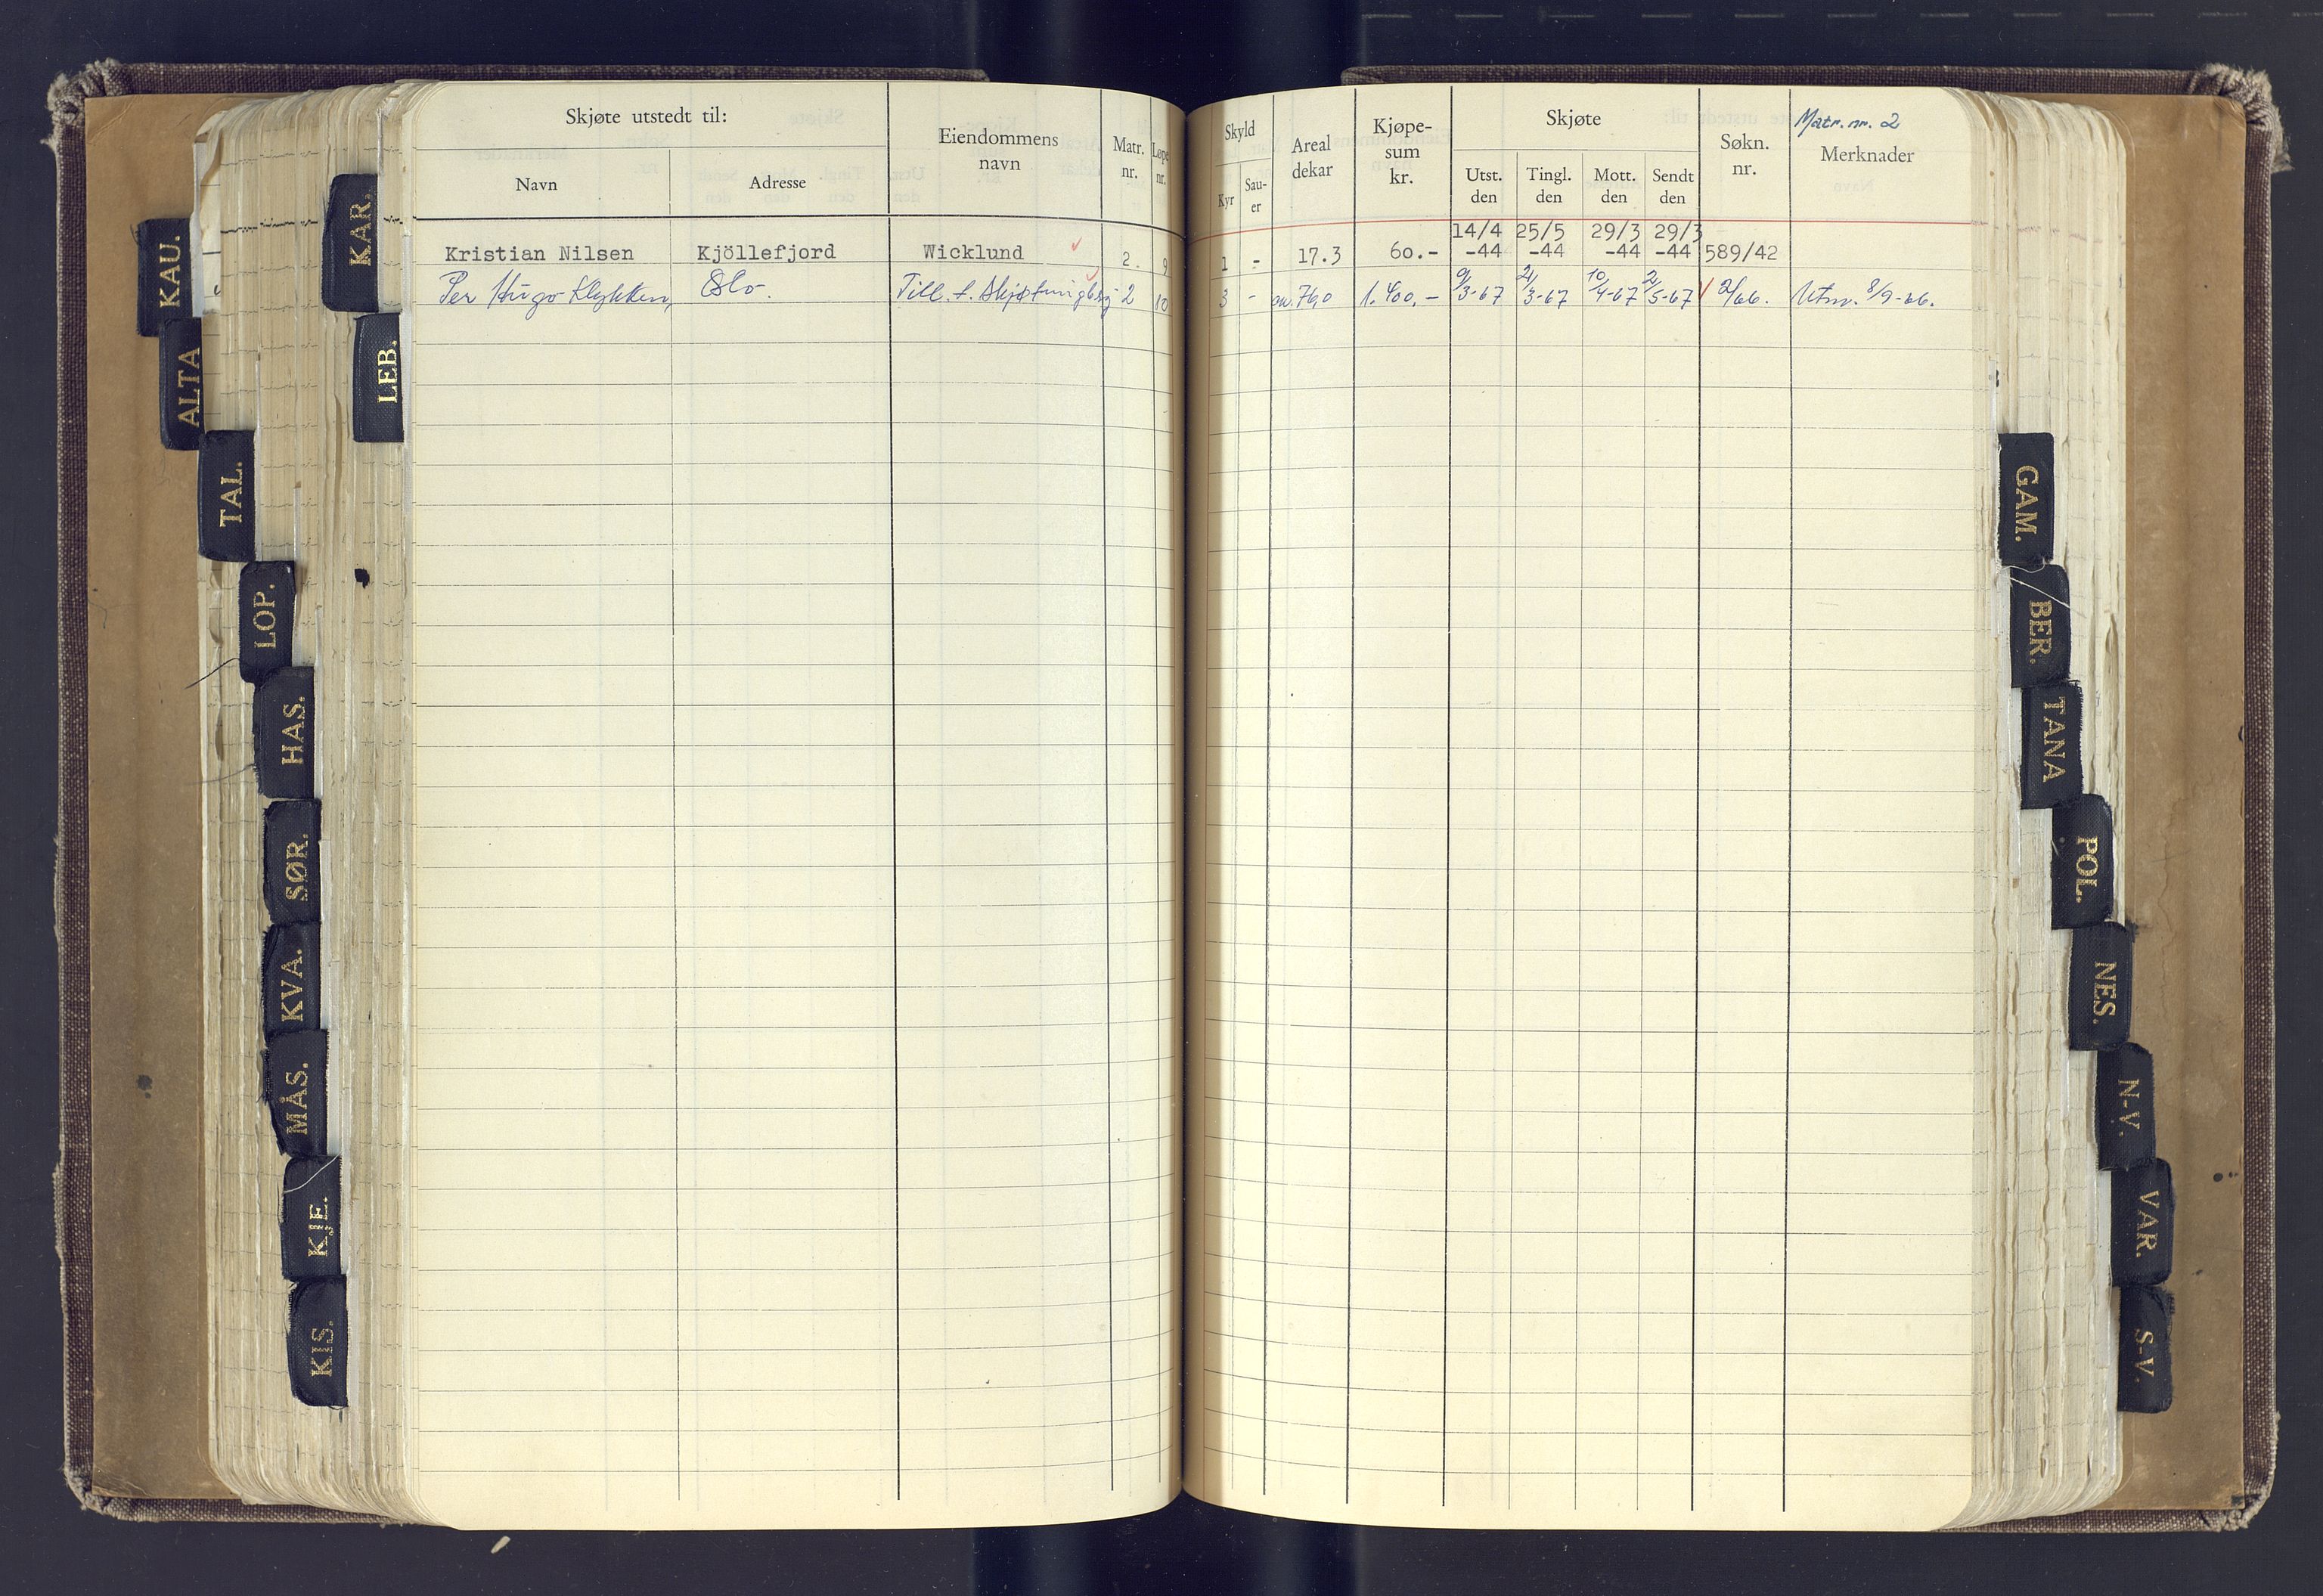 Skjøte utstedt til:
Navn
Adresse
Eiendommens
navn
Matr.
nr.
Løpe
nr.
Kristian Nilsen Kjöllefjord Wicklund 2. 9
Per Hugo Oslo. Till. t. 2 10
Matr. nr. 2
Skyld
Kyr
Sau-
er
Areal
dekar
Kjøpe-
sum
kr.
Skjøte
Utst.
den
Tingl.
den
Mott.
den
Sendt
den
Søkn.
nr.
Merknader
14/4 25/5 29/3 29/3
1 - 17.3 60.- -44 -44 -44 -44 589/42
3 - 1.400,- 9/3-67 21/3-67 10/4-67 2/5-67 2/66. Utm. 8/9-66.
KAU.
ALTA
TAL.
LOP.
HAS.
SØR.
KVA.
MÅS.
KJE.
KIS.
KAR.
LEB.
GAM.
BER.
TANA
POL.
NES.
N-V.
VAR.
S-V.